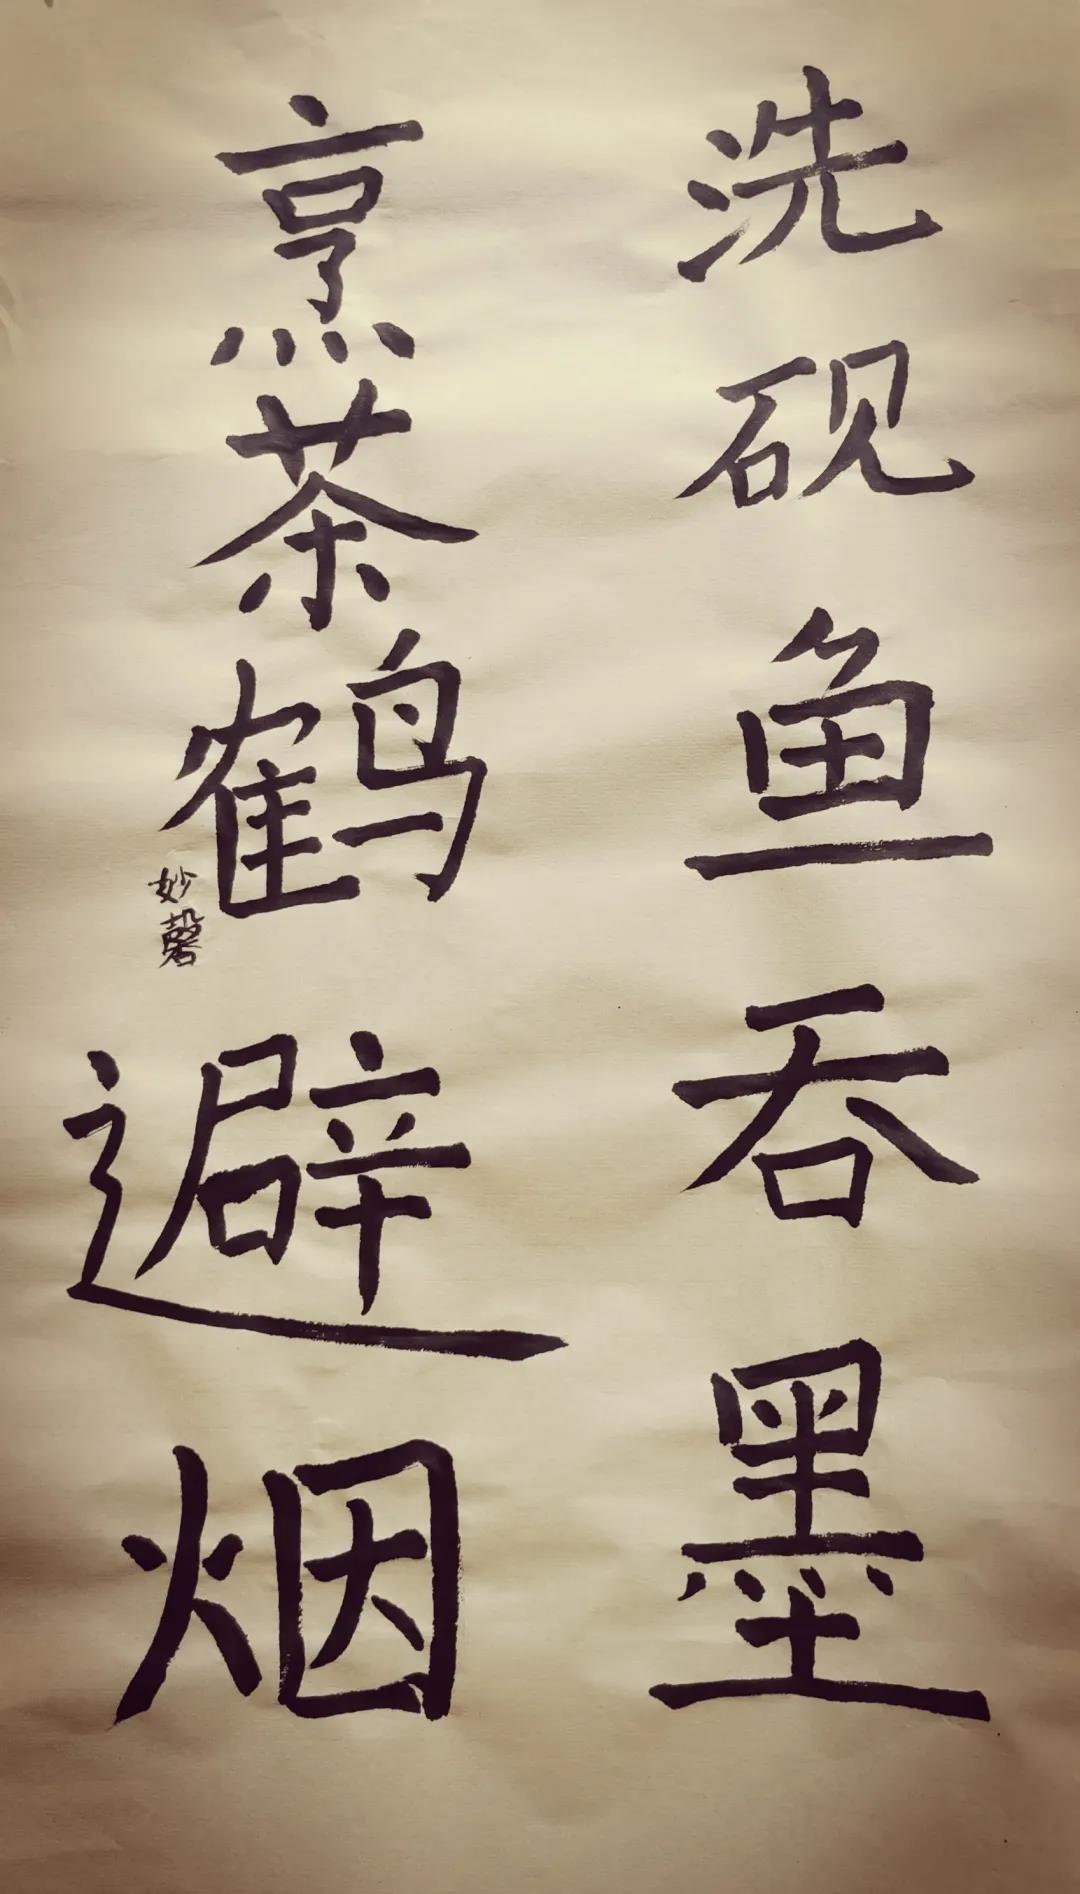 洗砚鱼吞墨
烹茶鹤避烟
妙磬